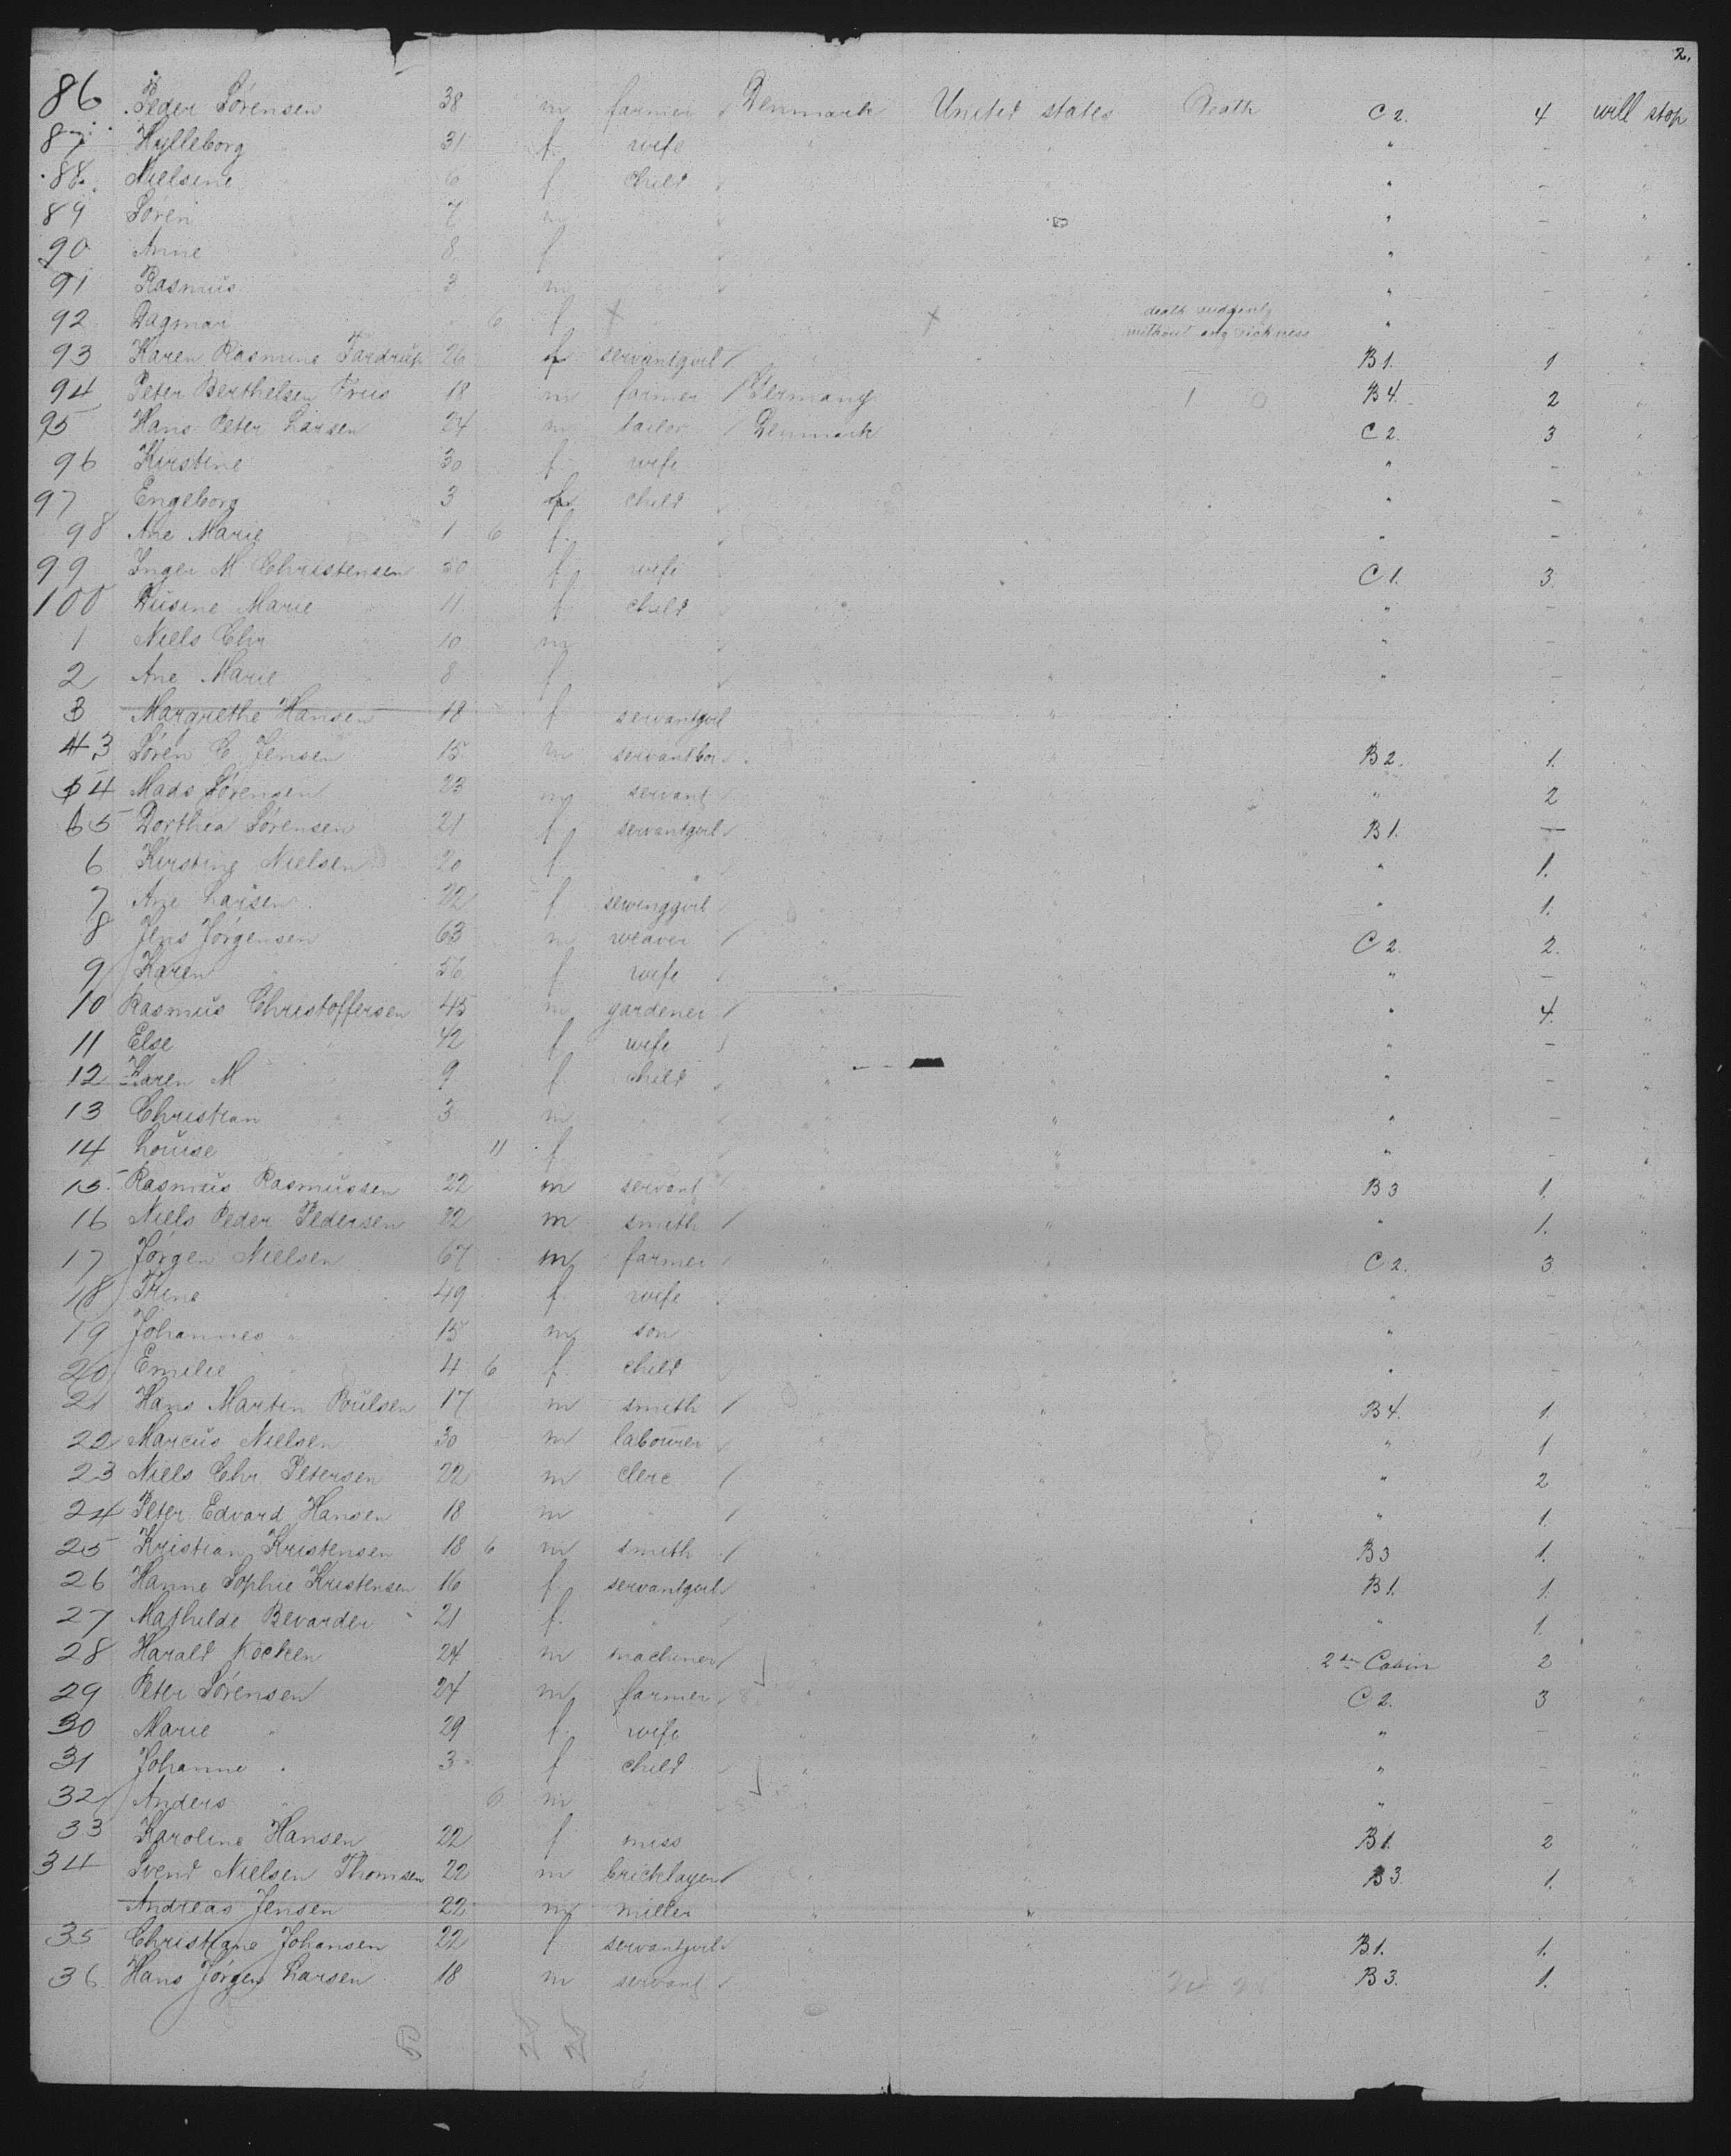 2.
86 Peder Sørensen 38 m farmer Denmark United states Death C 2. 4 will stop
87 Hylleborg " 31 f wife " " " - "
88 Nielsine " 6 f child " " " - "
89 Søren 7 m " - "
90 Anne 8 f " - "
91 Rasmus 3 m " - "
92 Dagmar 6 f death suddenly without any sickness " - "
93 Karen Rasmine 26 f servantgirl B 1. 1 "
94 Peter Berthelsen 18 m farmer Germany B 4. 2 "
95 Hans Peter Larsen 24 m tailor Denmark C 2. 3 "
96 Kirstine " 30 f wife " - "
97 Engeborg " 3 f child " - "
98 Ane Marie 1 6 f " - "
99 Inger M Christensen 30 f wife C 1. 3. "
100 Marie 11 f child " - "
1 Niels Chr " 10 m " - "
2 Ane Marie " 8 f " " - "
3 Margrethe Hansen 18 f servantgirl "
3 Søren C Jensen 15 m servantboi B 2. 1. "
4 Mads Sørensen 23 m servant " 2 "
5 Dorthea Sørensen 21 f servantgirl B 1. - "
6 Kirstine Nielsen 20 f " " 1. "
7 Ane Larsen 22 f sewinggirl " 1. "
8 Jens Jørgensen 63 m weaver " C 2. 2. "
9 Karen " 56 f wife " " " - "
10 Rasmus Christoffersen 45 m gardener " " " 4. "
11 Else " 42 f wife " " " - "
12 Karen M " 9 f child " " - "
13 Christian " 3 m " " " - "
14 Louise " 11 f " " - "
15 Rasmus Rasmussen 22 m servant " B 3 1. "
16 Niels Peder Pedersen 22 m smith " " " 1. "
17 Jørgen Nielsen 67 m farmer " " C 2. 3 "
18 Trine " 49 f wife " " - "
19 Johannes " 15 m son " " - "
20 Emilie " 4 6 f child " " - "
21 Hans Martin Poulsen 17 m smith " B 4. 1. "
22 Marcus Nielsen 30 m labourer " " 1 "
23 Niels Chr Petersen 22 m clerc " " 2 "
24 Peter Edvard Hansen 18 m " " " 1. "
25 Kristian Kristensen 18 6 m smith " " B 3 1. "
26 Hanne Sophie Kristensen 16 f servantgirl " " B 1. 1. "
27 Mathilde Bevarder 21 f " " " 1. "
28 Harald Kocken 24 m machiner " 2 Cabin 2 "
29 Peter Sørensen 24 m farmer " " C 2. 3 "
30 Marie " 29 f wife " " " - "
31 Johanne " 3 f child " " " - "
32 Anders " 6 m " " " " - "
33 Karoline Hansen 22 f miss " B 1. 2 "
34 Svend Nielsen Thomsen 22 m bricklayer " " B 3. 1. "
Andreas Jensen 22 m miller " "
35 Christiane Johansen 22 f servantgirl " " B 1. 1. "
36 Hans Jørgen Larsen 18 m servant " " B 3. 1.